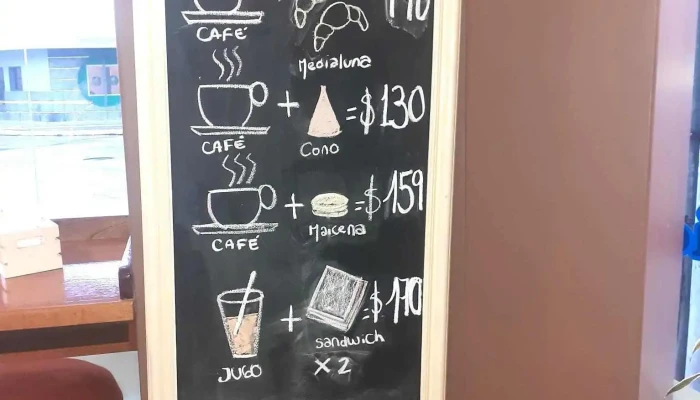 CAFÉ
Medialuna
+ = $130
CAFÉ
Cono
+ = $159
CAFÉ
Maicena
+ = $170
JUGO
Sandwich
x 2